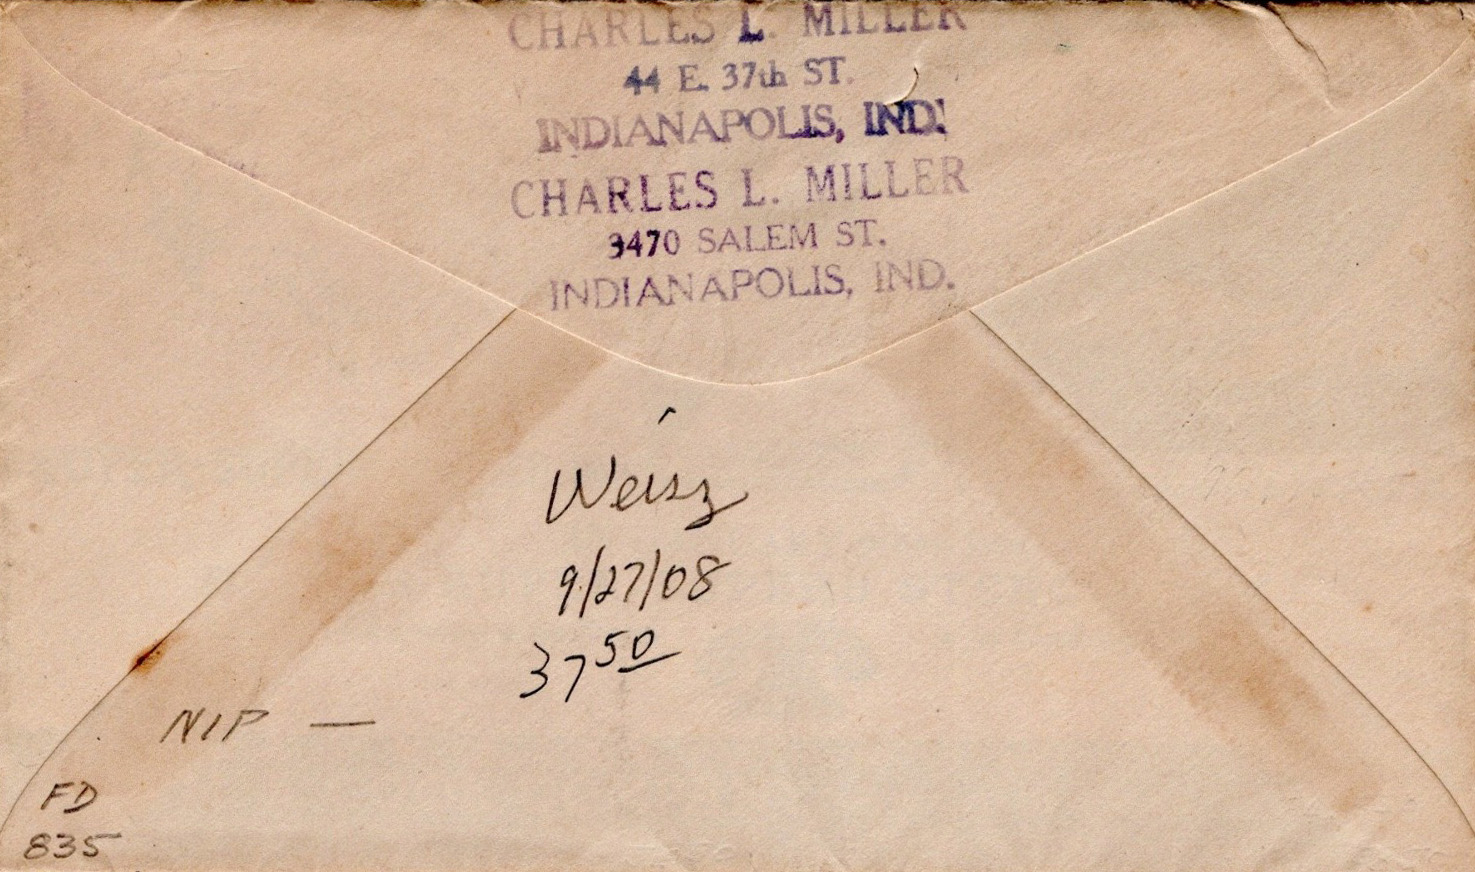 CHARLES L. MILLER
44 E. 37th ST.
INDIANAPOLIS, IND.
CHARLES L. MILLER
3470 SALEM ST.
INDIANAPOLIS, IND.
Weisz
9/27/08
37 50
NIP —
FD
835